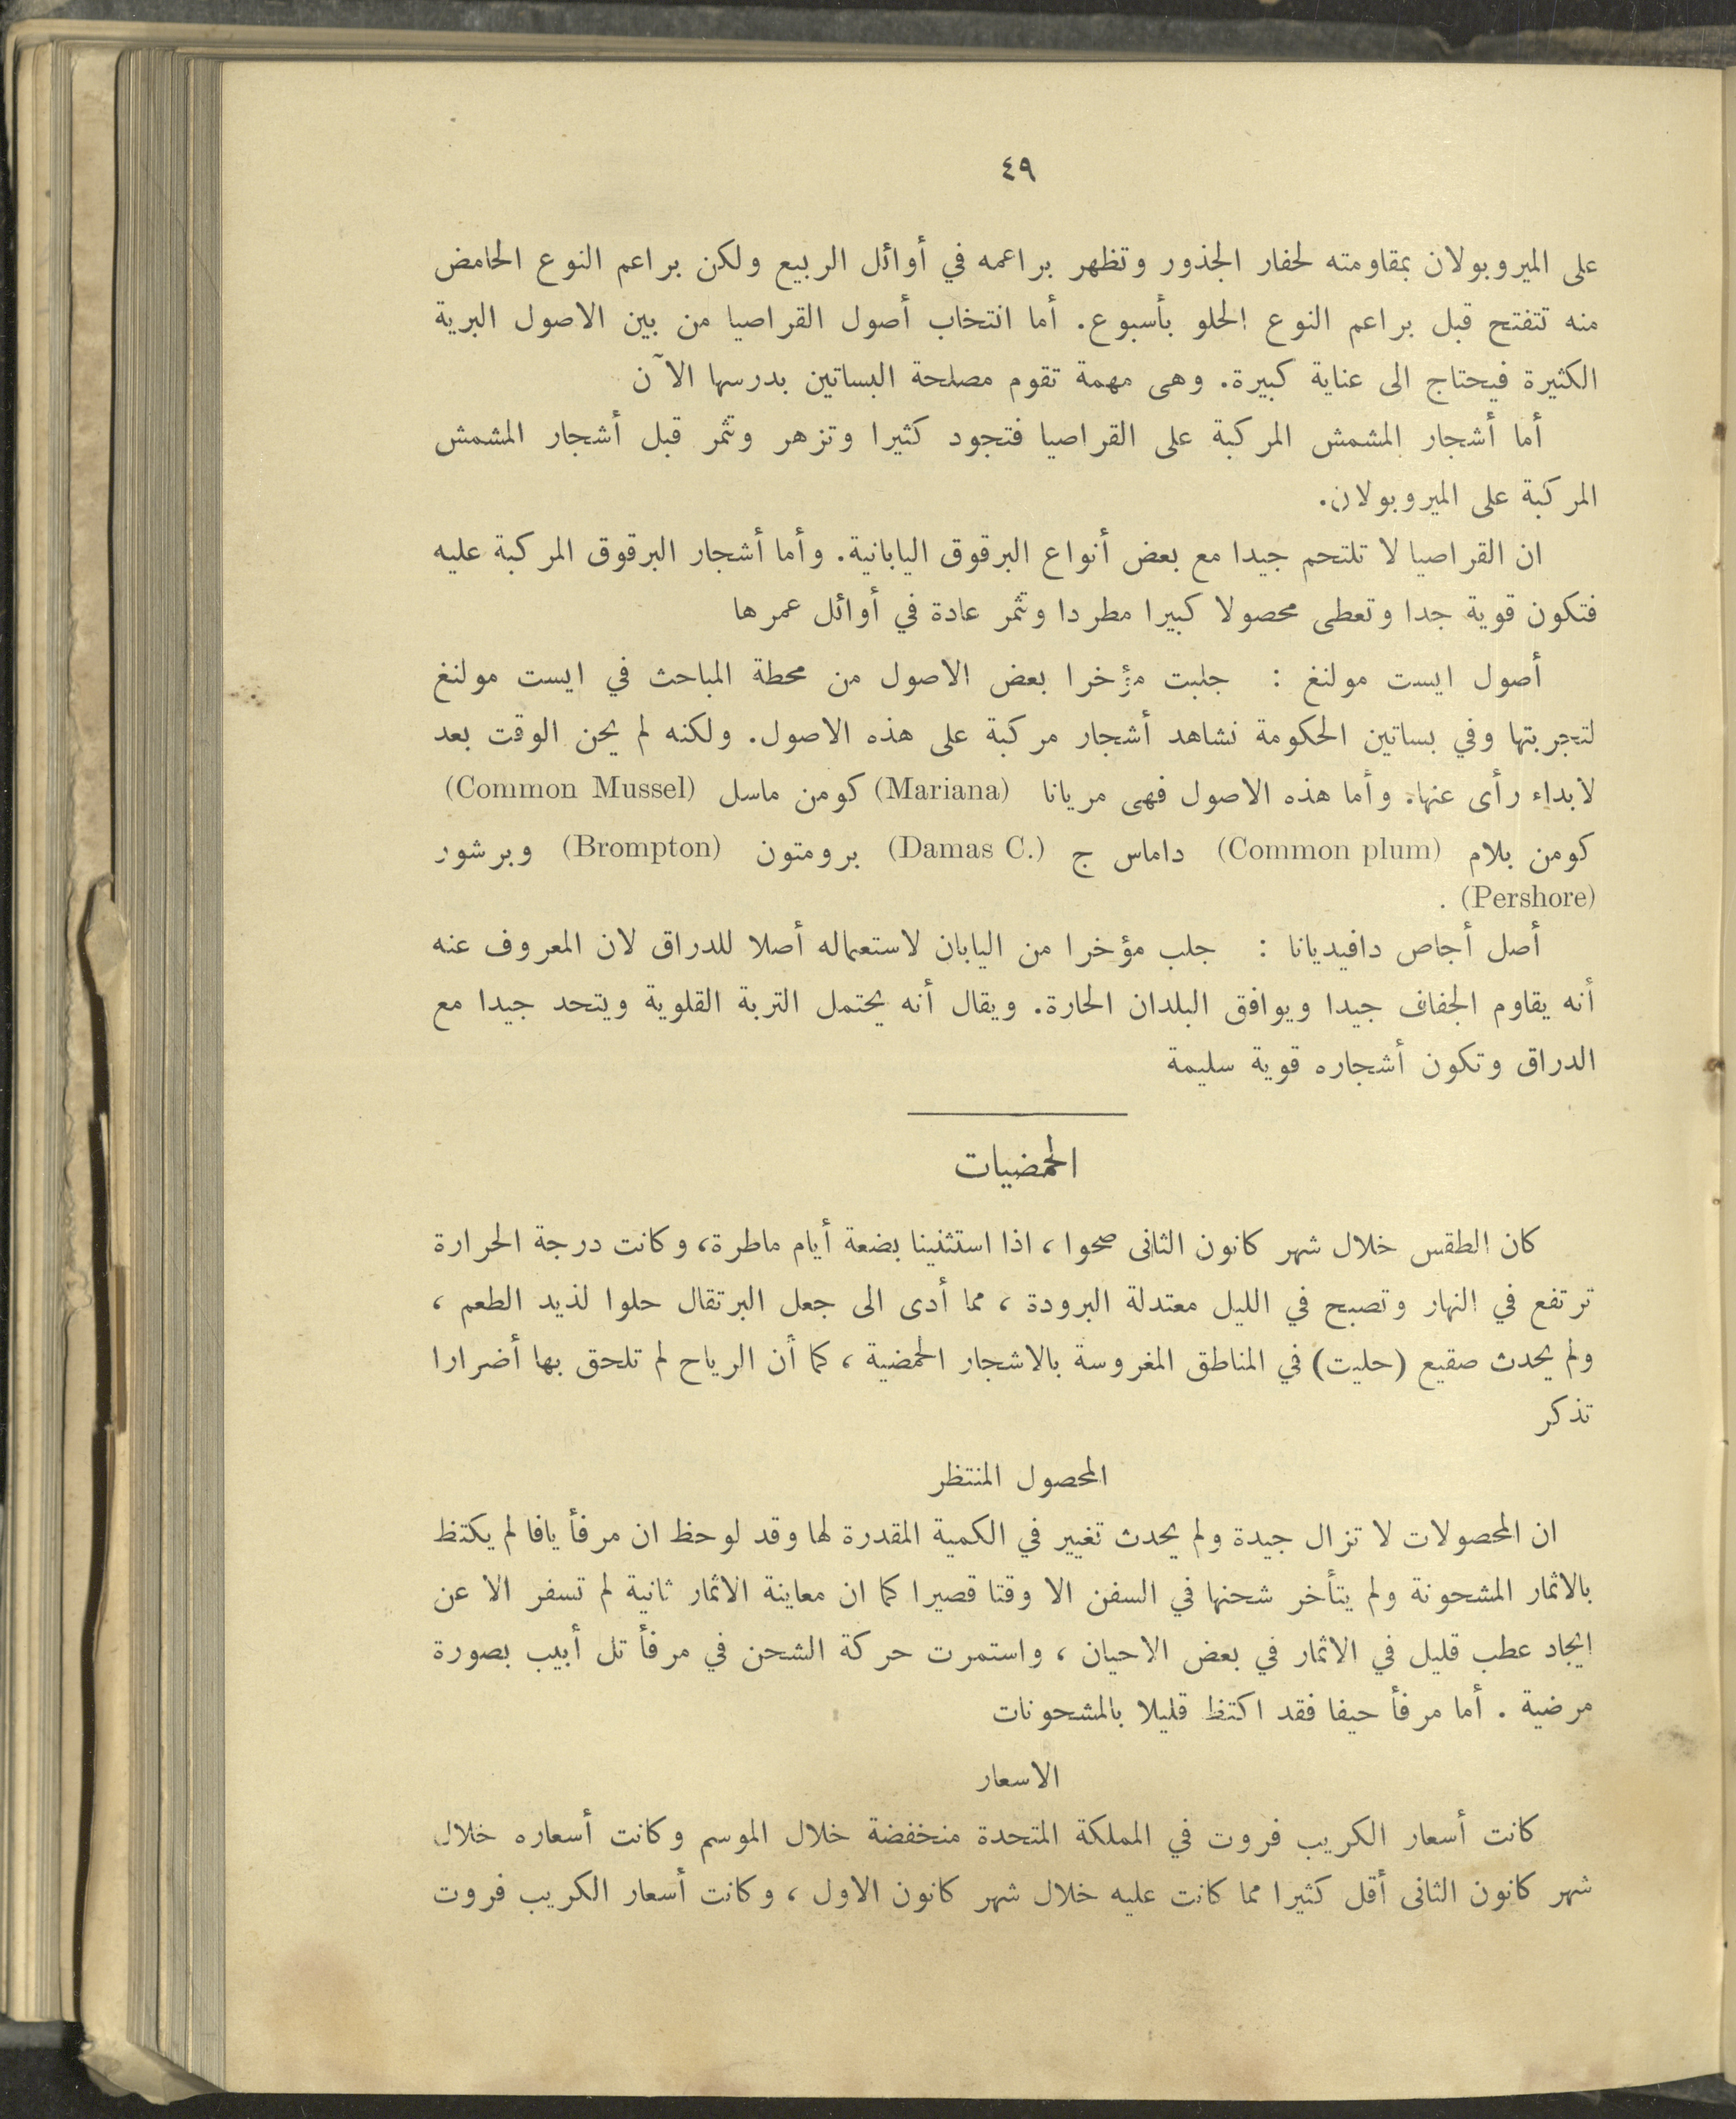 ٤٩
على الميروبولان بمقاومته لحفار الجذور وتظهر براعمه في أوائل الربيع ولكن براعم النوع الحامض
منه تتفتح قبل براعم النوع الحلو بأسبوع. أما انتخاب أصول القراصيا من بين الاصول البرية
الكثيرة فيحتاج الى عناية كبيرة. وهى مهمة تقوم مصلحة البساتين بدرسها الآن
أما أشجار المشمش المركبة على القراصيا فتجود كثيرا وتزهر وتثمر قبل أشجار المشمش
المركبة على الميروبولان.
ان القراصيا لا تلتحم جيدا مع بعض أنواع البرقوق اليابانية. وأما أشجار البرقوق المركبة عليه
فتكون قوية جدا وتعطى محصولا كبيرا مطردا وتثمر عادة في أوائل عمرها
أصول ايست مولنغ : جلبت مؤخرا بعض الاصول من محطة المباحث في ايست مولنغ
لتجربتها وفي بساتين الحكومة نشاهد أشجار مركبة على هذه الاصول. ولكنه لم يحن الوقت بعد
لابداء رأى عنها. وأما هذه الاصول فهى مريانا (Mariana) كومن ماسل (Common Mussel)
كومن بلام (Common plum) داماس ج (Damas C.) برومتون (Brompton) وبرشور
(Pershore) .
أصل أجاص دافيديانا : جلب مؤخرا من اليابان لاستعماله أصلا للدراق لان المعروف عنه
أنه يقاوم الجفاف جيدا ويوافق البلدان الحارة. ويقال أنه يحتمل التربة القلوية ويتحد جيدا مع
الدراق وتكون أشجاره قوية سليمة
الحمضيات
كان الطقس خلال شهر كانون الثانى صحوا ، اذا استثنينا بضعة أيام ماطرة، وكانت درجة الحرارة
ترتفع في النهار وتصبح في الليل معتدلة البرودة ، مما أدى الى جعل البرتقال حلوا لذيد الطعم ،
ولم يحدث صقيع (حليت) في المناطق المغروسة بالاشجار الحمضية ، كما أن الرياح لم تلحق بها أضرارا
تذكر
المحصول المنتظر
ان المحصولات لا تزال جيدة ولم يحدث تغيير في الكمية المقدرة لها وقد لوحظ ان مرفأ يافا لم يكتظ
بالاثمار المشحونة ولم يتأخر شحنها في السفن الا وقتا قصيرا كما ان معاينة الاثمار ثانية لم تسفر الا عن
ايجاد عطب قليل في الاثمار في بعض الاحيان ، واستمرت حركة الشحن في مرفأ تل أبيب بصورة
مرضية . أما مرفأ حيفا فقد اكتظ قليلا بالمشحونات
الاسعار
كانت أسعار الكريب فروت في المملكة المتحدة منخفضة خلال الموسم وكانت أسعاره خلال
شهر كانون الثانى أقل كثيرا مما كانت عليه خلال شهر كانون الاول ، وكانت أسعار الكريب فروت